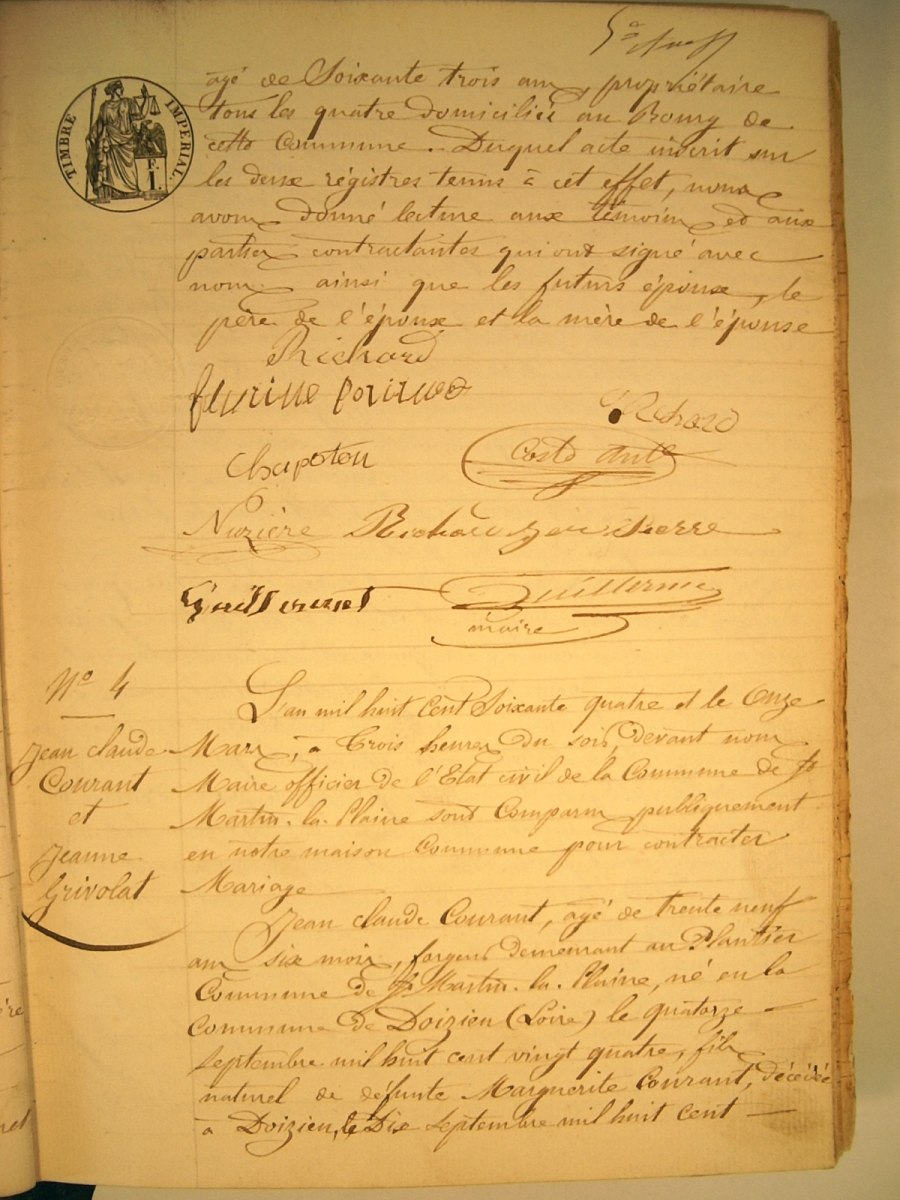 TIMBRE IMPERIAL.
E.
I.
agé de Soixante trois ans, propriétaire
tous les quatre domiciliés au Bourg de
cette Commune. Duquel acte inscrit sur
les deux régistres tenus à cet effet, nous
avons donné lecture aux témoins et aux
parties contractantes qui ont signé avec
nous ainsi que les futurs époux, le
père de l'époux et la mère de l'épouse
Richard
Richard
Chapoton
Nuzière Richard Pierre
Guillermet
Guillerme
maire
N° 4
Jean claude
Courant
et
Jeanne
Grivolat
L'an mil huit Cent Soixante quatre et le Onze
Mars, à Trois heures du soir, devant nous
Maire officier de l'Etat civil de la Commune de St
Martin-la-Plaine sont Comparus publiquement
en notre maison Commune pour contracter
Mariage
Jean claude Courant, agé de trente neuf
ans six mois, forgeur demeurant au Plantier
Commune de St Martin-la-Plaine, né en la
Commune de Doizieu (Loire) le quatorze
septembre mil huit cent vingt quatre, fils
naturel de défunte Marguerite Courant, décédée
à Doizieu, le Dix septembre mil huit cent